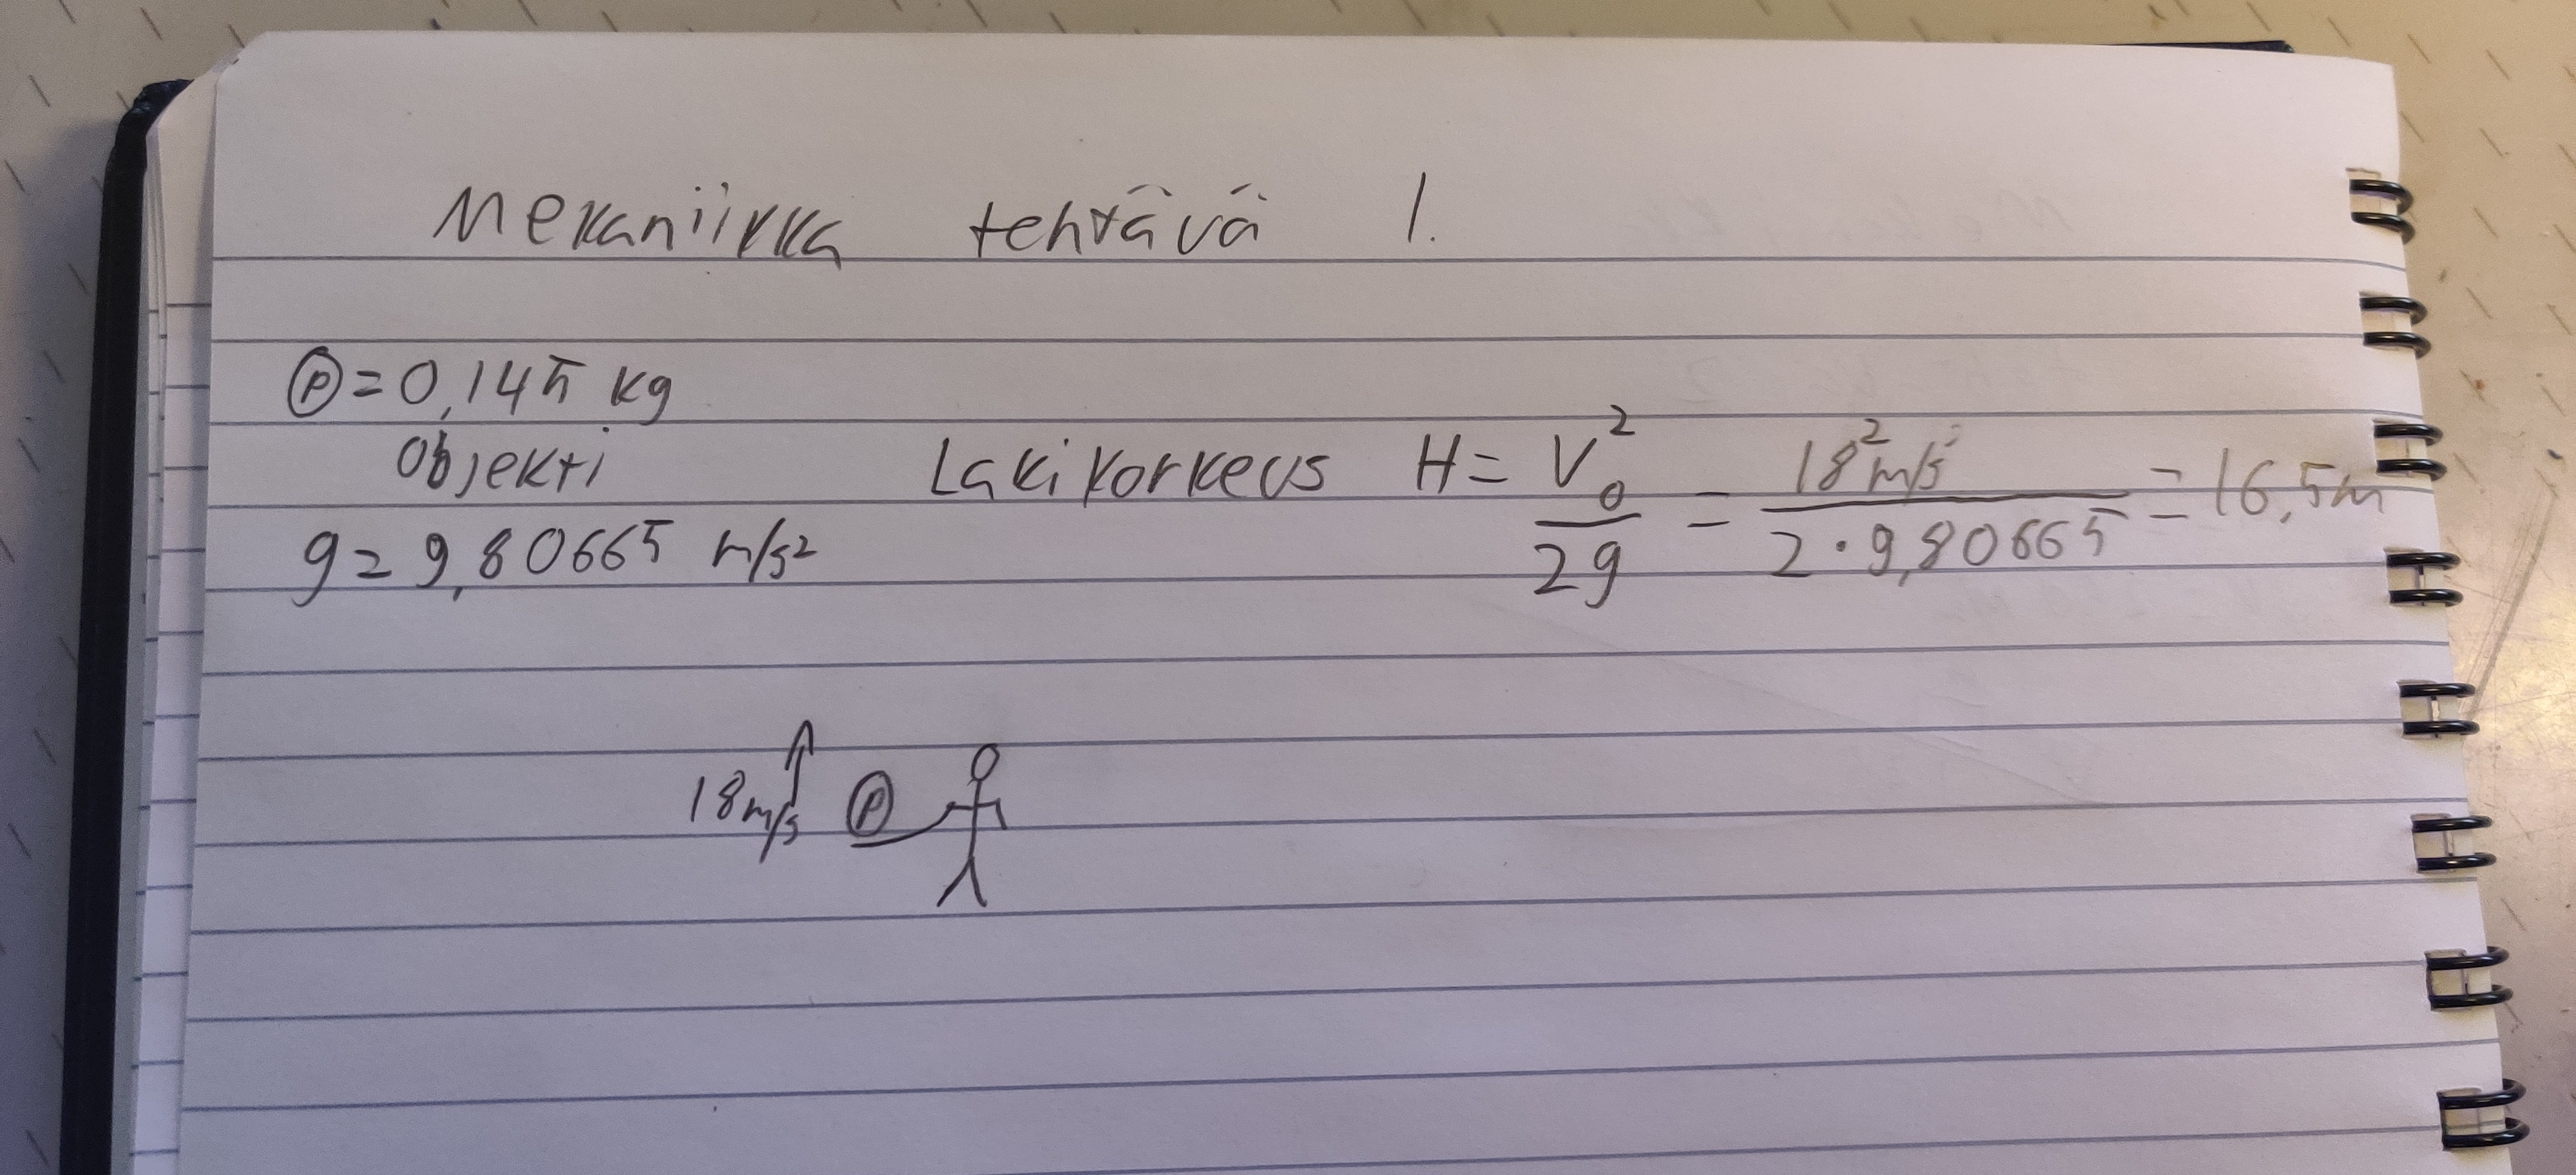 Mekaniikka tehtävä 1.
Ⓟ = 0,145 kg
Objekti
g = 9,80665 m/s²
Lakikorkeus H = V₀²/2g = 18² m/s/2·9,80665 = 16,5m
18 m/s Ⓟ